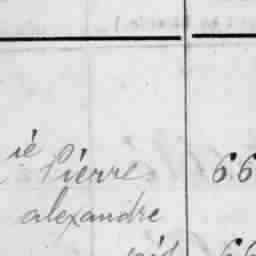 ié Pierre 66
alexandre
66